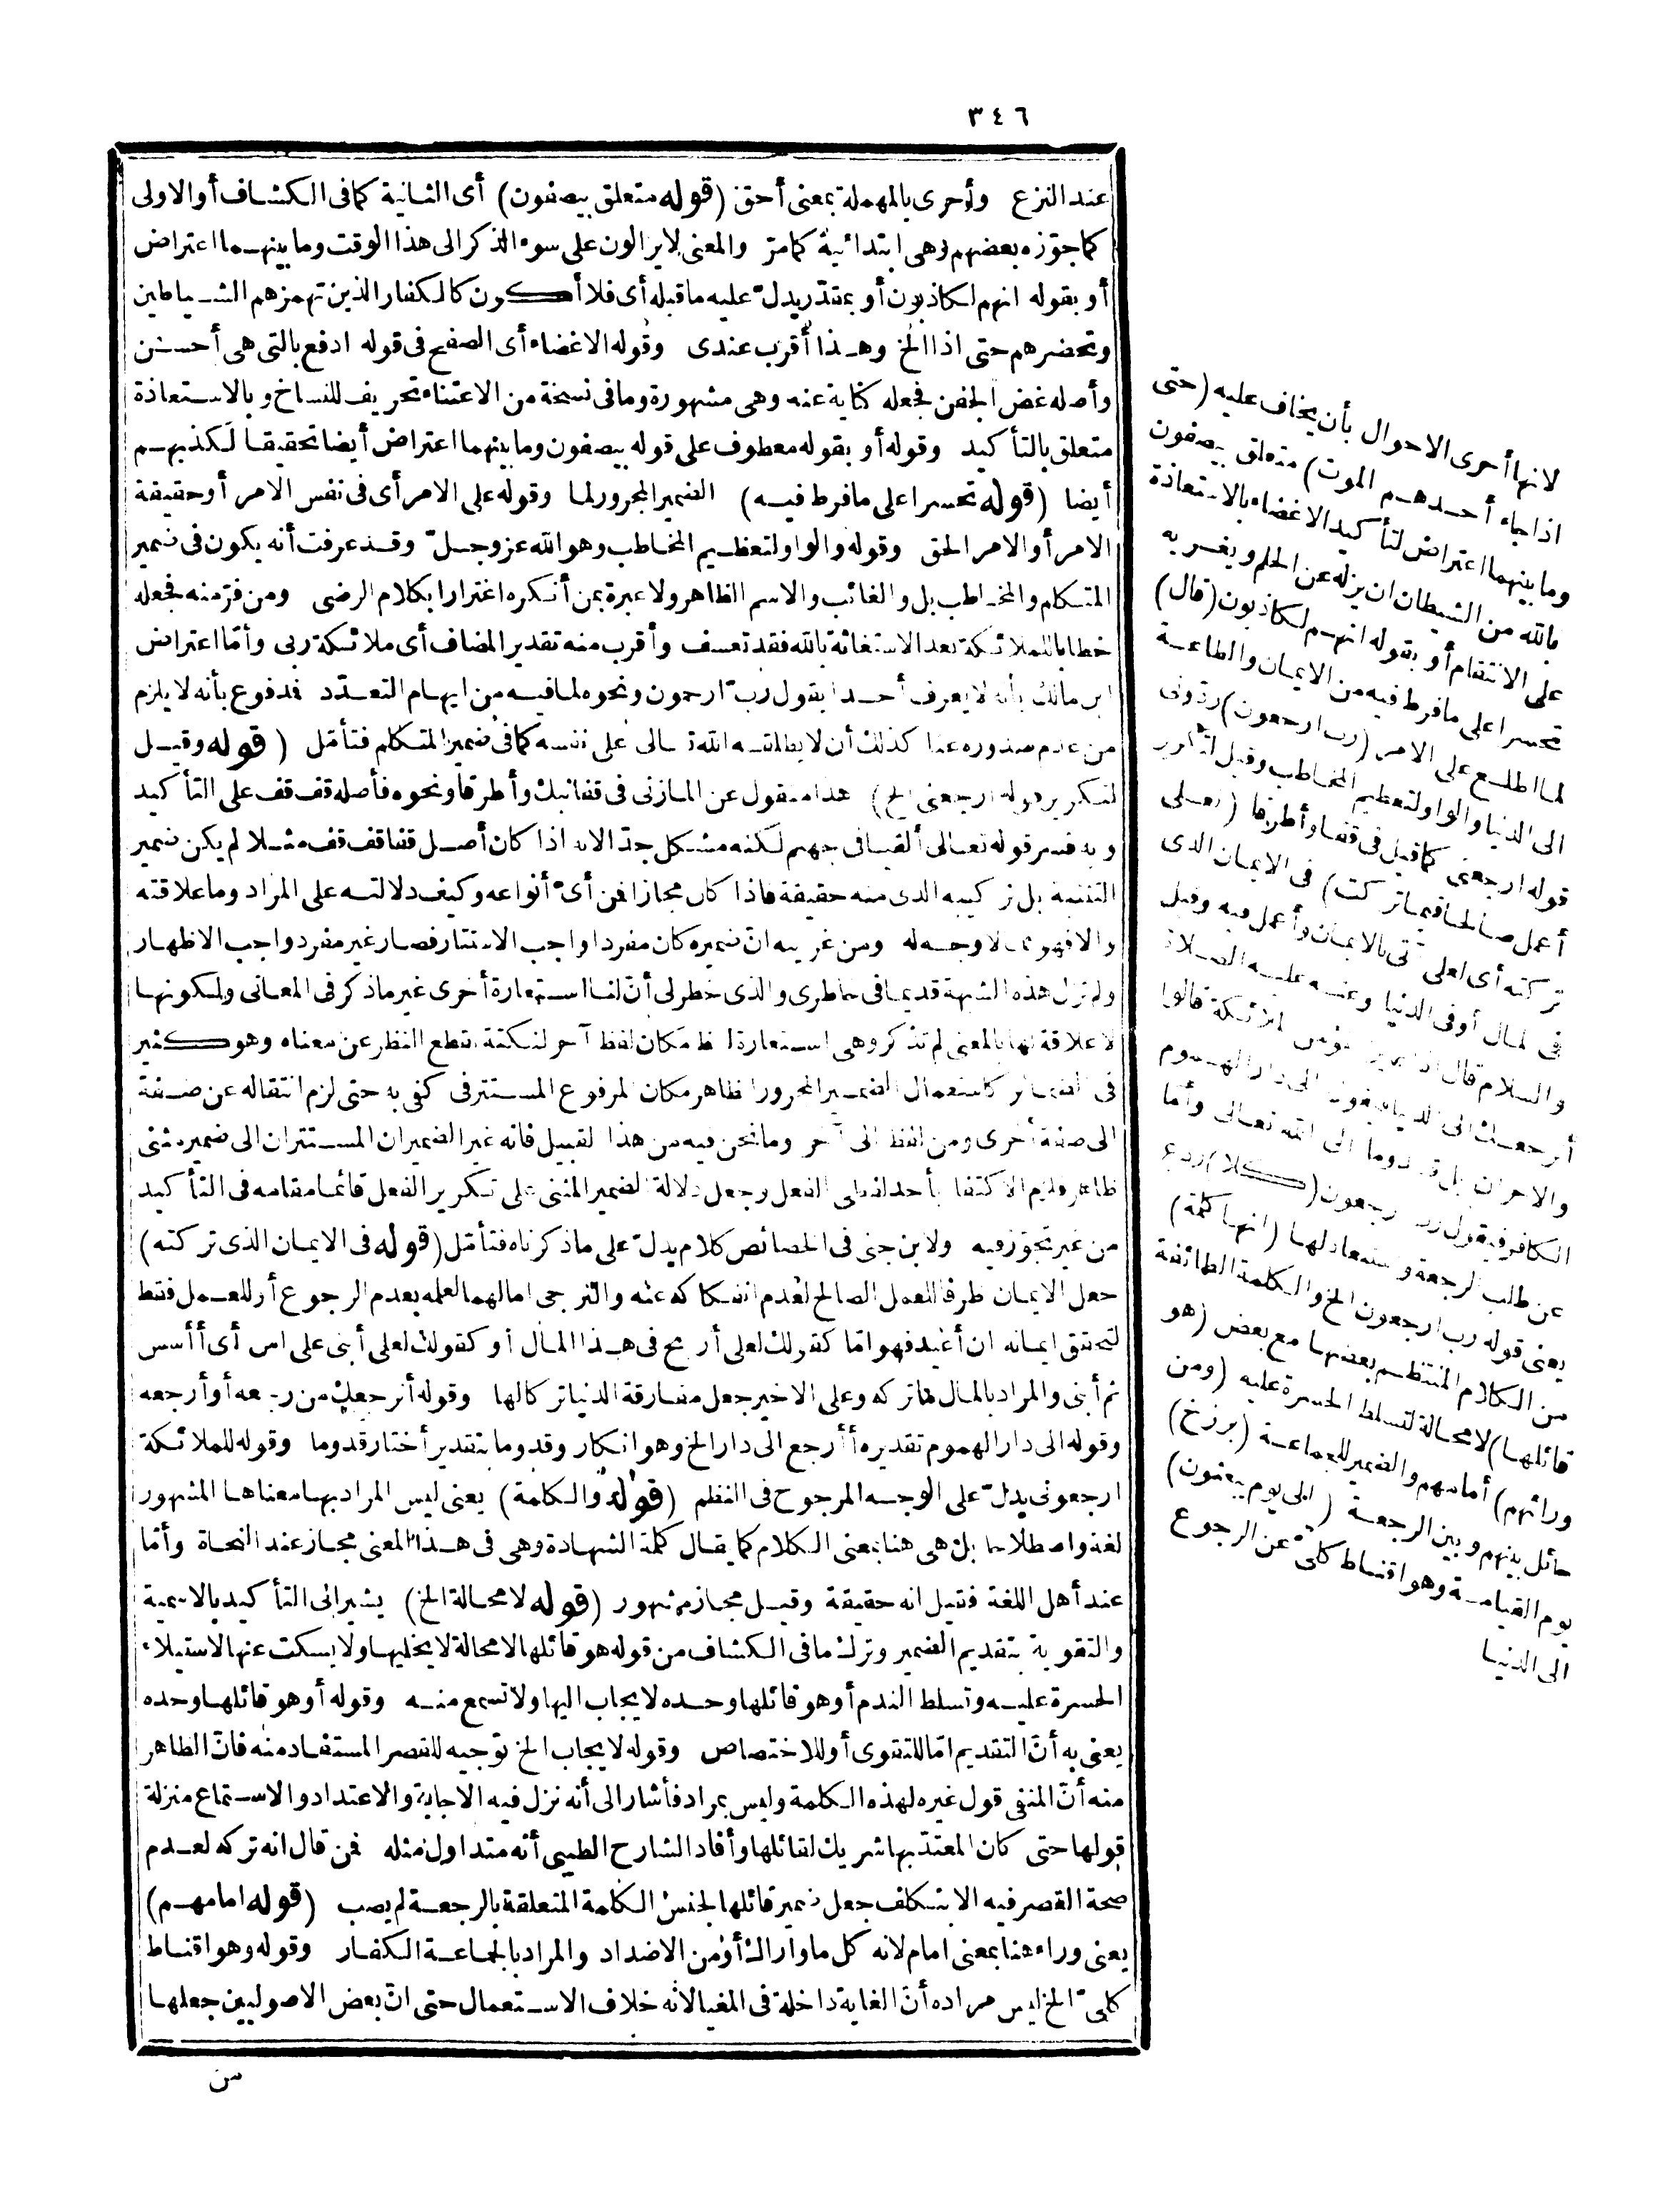 ٣٤٦
عند النزع وأحرى بالمهملة بمعنى أحق (قوله متعلق بيصفون) أى الثانية كما فى الكشاف أو الاولى
كما جوّزه بعضهم وهى ابتدائية كما مرّ والمعنى لايزالون على سوء الذكر الى هذا الوقت وما بينهما اعتراض
أو بقوله انهم لكاذبون أو بمقدّر يدلّ عليه ما قبله أى فلا أكون كالكفار الذين تهمزهم الشياطين
وتحضرهم حتى اذا الخ وهذا أقرب عندى وقوله الاغضاء أى الصفح فى قوله ادفع بالتى هى أحسن
وأصله غض الجفن فجعله كناية عنه وهى مشهورة وما فى نسخة من الاعتناء تحريف للنساخ وبالاستعاذة
متعلق بالتأكيد وقوله أو بقوله معطوف على قوله بيصفون وما بينهما اعتراض أيضا تحقيقا لكذبهم
أيضا (قوله تحسرا على ما فرط فيه) الضمير المجرور لما وقوله على الامر أى فى نفس الامر أو حقيقة
الامر أو الامر الحق وقوله والواو لتعظيم المخاطب وهو الله عز وجلّ وقد عرفت أنه يكون فى ضمير
المتكلم والمخاطب بل والغائب والاسم الظاهر ولا عبرة بمن أنكره اغترارا بكلام الرضى ومن فرّ منه فجعله
خطابا للملائكة بعد الاستغاثة بالله فقد تعسف وأقرب منه تقدير المضاف أى ملائكة ربى وأمّا اعتراض
ابن مالك بأنه لا يعرف أحدا يقول ربّ ارحمون ونحوه لما فيه من ايهام التعدّد فمدفوع بأنه لا يلزم
من عدم صدوره عنا كذلك أن لا يطلقه الله تعالى على نفسه كما فى ضمير المتكلم فتأمّل (قوله وقيل
لتكرير قوله ارجعنى الخ) هذا منقول عن المازنى فى قفا نبك وأطرقا ونحوه فأصله قف قف على التأكيد
وبه فسر قوله تعالى ألقيا فى جهنم لكنه مشكل جدّا لانه اذا كان أصل قفا قف قف مثلا لم يكن ضمير
التثنية بل تركيبه الذى منه حقيقة فاذا كان مجازا فمن أىّ أنواعه وكيف دلالته على المراد وما علاقته
والا فهو مما لا وجه له ومن غريبه انّ ضميره كان مفردا واجب الاستتار فصار غير مفرد واجب الاظهار
ولم تزل هذه الشبهة قديما فى خاطرى والذى خطر لى أنّ لنا استعارة أخرى غير ما ذكر فى المعانى ولكونها
لا علاقة لها بالمعنى لم تذكر وهى استعارة لفظ مكان لفظ آخر لنكتة بقطع النظر عن معناه وهو كثير
فى الضمائر كاستعمال الضمير المجرور الظاهر مكان المرفوع المستتر فى كفى به حتى لزم انتقاله عن صفة
الى صفة أخرى ومن لفظ الى آخر وما نحن فيه من هذا القبيل فانه غير الضميران المستتران الى ضمير مثنى
ظاهر ولزم الاكتفاء بأحد لفظى الفعل وجعل دلالة الضمير المثنى على تكرير الفعل قائما مقامه فى التأكيد
من غير تجوّز فيه ولابن جنى فى الخصائص كلام يدلّ على ما ذكرناه فتأمّل (قوله فى الايمان الذى تركته)
جعل الايمان ظرفا للعمل الصالح لعدم انفكاكه عنه والترجى اما لهما لعلمه بعدم الرجوع أو للعمل فقط
لتحقق ايمانه ان أعيد فهو امّا كقولك لعلى أربح فى هذا المال أو كقولك لعلى أبنى على اس أى أأسس
ثم أبنى والمراد بالمال ما تركه وعلى الاخير جعل مفارقة الدنيا تركا لها وقوله أنرجعك من رجعه أو أرجعه
وقوله الى دار الهموم تقديره أأرجع الى دار الخ وهو انكار وقدوما بتقدير أختار قدوما وقوله للملائكة
ارجعونى يدلّ على الوجه المرجوح فى النظم (قوله والكلمة) يعنى ليس المراد بها معناها المشهور
لغة واصطلاحا بل هى هنا بمعنى الكلام كما يقال كلمة الشهادة وهى فى هذا المعنى مجاز عند النحاة وأمّا
عند أهل اللغة فقيل انه حقيقة وقيل مجاز مشهور (قوله لا محالة الخ) يشير الى التأكيد بالاسمية
والتقوية بتقديم الضمير وترك ما فى الكشاف من قوله هو قائلها لا محالة لا يخليها ولا يسكت عنها لاستيلاء
الحسرة عليه وتسلط الندم أو هو قائلها وحده لا يجاب اليها ولا تسمع منه وقوله أو هو قائلها وحده
يعنى به أنّ التقديم امّا للتقوى أو للاختصاص وقوله لا يجاب الخ توجيه للقصر المستفاد منه فانّ الظاهر
منه أنّ المنفى قول غيره لهذه الكلمة وليس بمراد فأشار الى أنه نزل فيه الاجابة والاعتداد والاستماع منزلة
قولها حتى كان المعتدّ بها شريك لقائلها وأفاد الشارح الطيبى أنه متداول مثله فمن قال انه تركه لعدم
صحة القصر فيه الا بتكلف جعل ضمير قائلها لجنس الكلمة المتعلقة بالرجعة لم يصب (قوله امامهم)
يعنى وراء هنا بمعنى امام لانه كل ما واراك أو من الاضداد والمراد بالجماعة الكفار وقوله وهو اقناط
كلىّ الخ ليس مراده أنّ الغاية داخلة فى المغيا لانه خلاف الاستعمال حتى انّ بعض الاصوليين جعلها
من
لانها أحرى الاحوال بأن يخاف عليه (حتى
اذا جاء أحدهم الموت) متعلق بيصفون
وما بينهما اعتراض لتأكيد الاغضاء بالاستعاذة
بالله من الشيطان ان يزله عن الحلم ويغريه
على الانتقام أو بقوله انهم لكاذبون (قال)
تحسرا على ما فرط فيه من الايمان والطاعة
لما اطلع على الامر (رب ارجعون) ردّونى
الى الدنيا والواو لتعظيم المخاطب وقيل لتكرير
قوله ارجعنى كما قيل فى قفا وأطرقا (لعلى
أعمل صالحا فيما تركت) فى الايمان الذى
تركته أى لعلى آتى بالايمان وأعمل فيه وقيل
فى المال أو فى الدنيا وعنه عليه الصلاة
والسلام قال اذا عاين المؤمن الملائكة قالوا
أنرجعك الى الدنيا فيقول الى دار الهموم
والاحزان بل قدوما الى الله تعالى وأمّا
الكافر فيقول رب ارجعون (كلا) ردع
عن طلب الرجعة واستبعاد لها (انها كلمة)
يعنى قوله رب ارجعون الخ والكلمة الطائفة
من الكلام المنتظم بعضها مع بعض (هو
قائلها) لا محالة لتسلط الحسرة عليه (ومن
ورائهم) أمامهم والضمير للجماعة (برزخ)
حائل بينهم وبين الرجعة (الى يوم يبعثون)
يوم القيامة وهو اقناط كلىّ عن الرجوع
الى الدنيا